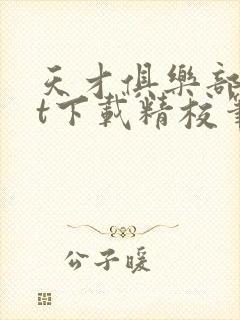 天才俱樂部
t下載精校
公子暖